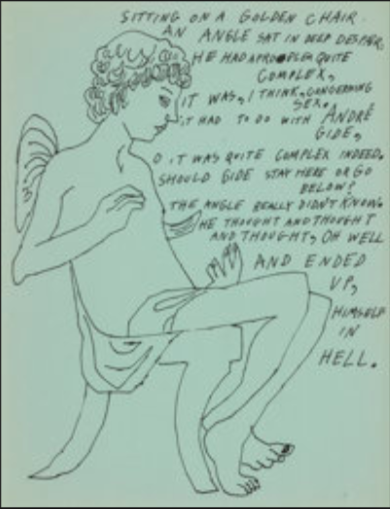 SITTING ON A GOLDEN CHAIR
AN ANGLE SAT IN DEEP DESPER,
HE HAD A PROBLEM QUITE
COMPLEX,
IT WAS, I THINK, CONCERNING
SEX.
IT HAD TO DO WITH ANDRÉ
GIDE,
O IT WAS QUITE COMPLEX INDEED,
SHOULD GIDE STAY HERE OR GO
BELOW?
THE ANGLE REALLY DIDN'T KNOW.
HE THOUGHT AND THOUGHT
AND THOUGHT, OH WELL
AND ENDED
UP,
HIMSELF
IN
HELL.